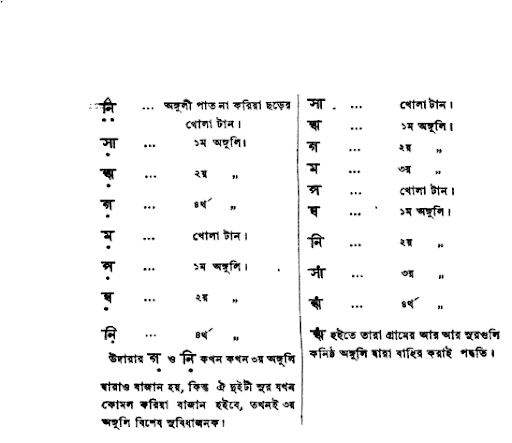 নি ... অঙ্গুলী পাত না করিয়া ছড়ের
খোলা টান।
সা ... ১ম অঙ্গুলি।
ঋ ... ২য় „
গ ... ৪র্থ „
ম ... খোলা টান।
প ... ১ম অঙ্গুলি।
ধ ... ২য় „
নি ... ৪র্থ „
উদারার গ ও নি কখন কখন ৩য় অঙ্গুলি
দ্বারাও বাজান হয়, কিন্তু ঐ দুইটী সুর যখন
কোমল করিয়া বাজান হইবে, তখনই ৩য়
অঙ্গুলি বিশেষ সুবিধাজনক।
সা ... খোলা টান।
ঋ ... ১ম অঙ্গুলি।
গ ... ২য় „
ম ... ৩য় „
প ... খোলা টান।
ধ ... ১ম অঙ্গুলি।
নি ... ২য় „
সা ... ৩য় „
ঋ ... ৪র্থ „
ঋ হইতে তারা গ্রামের আর আর সুরগুলি
কনিষ্ঠ অঙ্গুলি দ্বারা বাহির করাই পদ্ধতি।